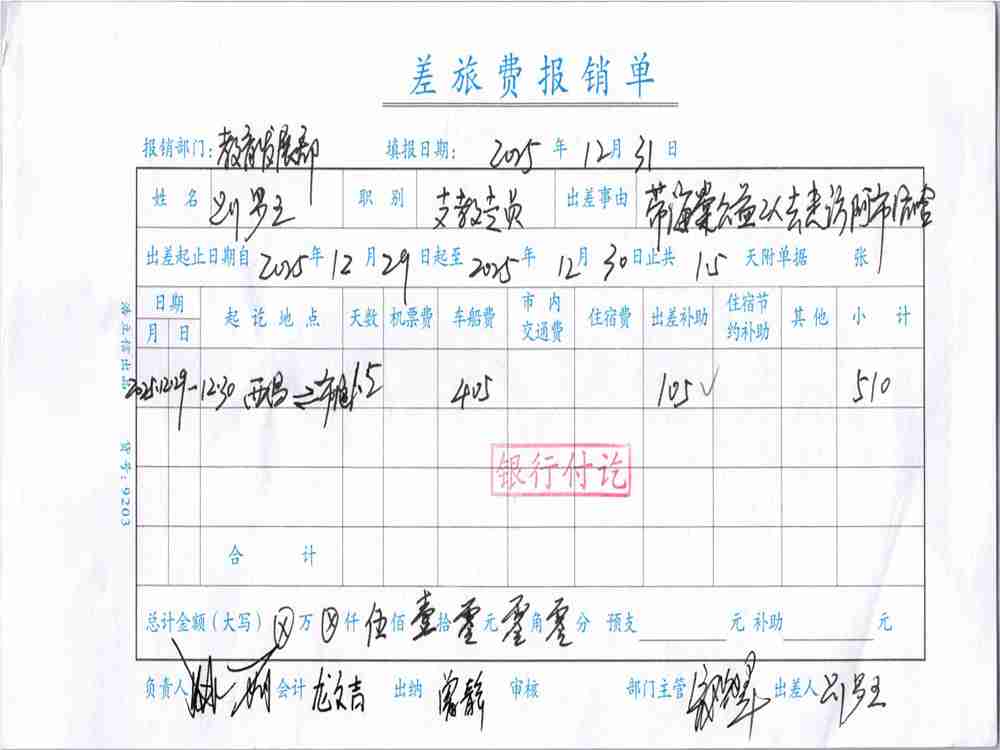 差旅费报销单
报销部门：教育发展部 填报日期： 2025 年 12 月 31 日
姓名 职别 支教专员 出差事由 带海棠公益2人去走访阿布洛哈
出差起止日期自 2025 年 12 月 29 日起至 2025 年 12 月 30 日止共 1.5 天附单据 张
日期 起讫地点 天数 机票费 车船费 市内交通费 住宿费 出差补助 住宿节约补助 其他 小计
月 日
2025.12.29-12.30 西昌 ⇌ 1.5 405 105 ✓ 510
银行付讫
合计
总计金额（大写） ⊗ 万 ⊗ 仟 伍 佰 壹 拾 零 元 零 角 零 分 预支 元 补助 元
负责人 会计 龙文吉 出纳 曾静 审核 部门主管 出差人
浩立信出品 货号：9203